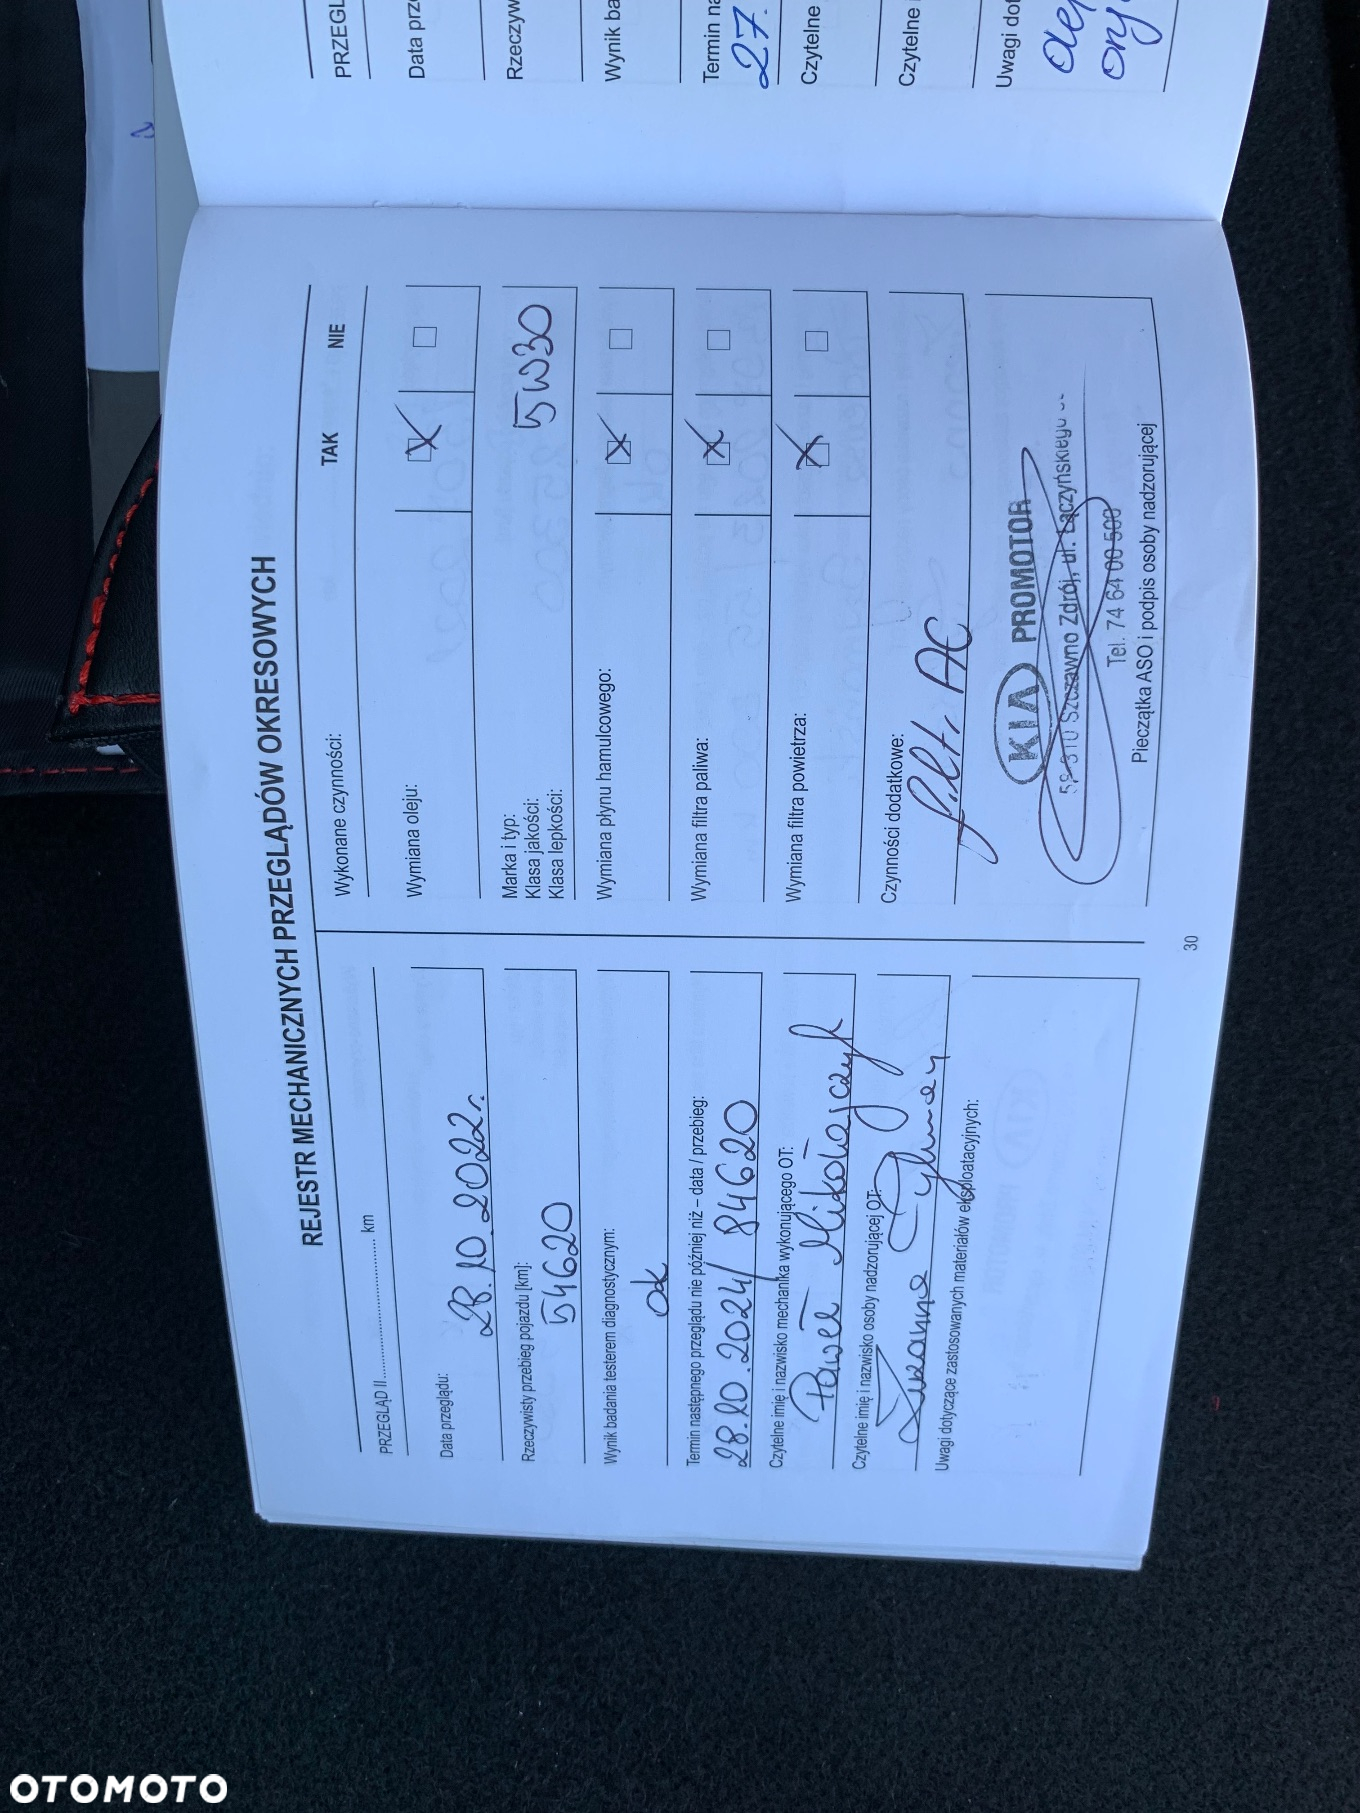 REJESTR MECHANICZNYCH PRZEGLĄDÓW OKRESOWYCH
PRZEGLĄD II............................ km
Data przeglądu:
28.10.2022r.
Rzeczywisty przebieg pojazdu [km]:
54620
Wynik badania testerem diagnostycznym:
ok
Termin następnego przeglądu nie później niż – data / przebieg:
28.10.2024/ 84620
Czytelne imię i nazwisko mechanika wykonującego OT:
Paweł Mikołajczyk
Czytelne imię i nazwisko osoby nadzorującej OT:
Uwagi dotyczące zastosowanych materiałów eksploatacyjnych:
Wykonane czynności: TAK NIE
Wymiana oleju:
Marka i typ:
Klasa jakości:
Klasa lepkości:
5W30
Wymiana płynu hamulcowego:
Wymiana filtra paliwa:
Wymiana filtra powietrza:
Czynności dodatkowe:
filtr AC
KIA PROMOTOR
58-310 Szczawno Zdrój, ul. Łączyńskiego
Tel. 74 64 00 500
Pieczątka ASO i podpis osoby nadzorującej
30
PRZEGL
Data prz
Rzeczyw
Wynik ba
Termin na
27.
Czytelne
Czytelne i
Uwagi dot
OTOMOTO